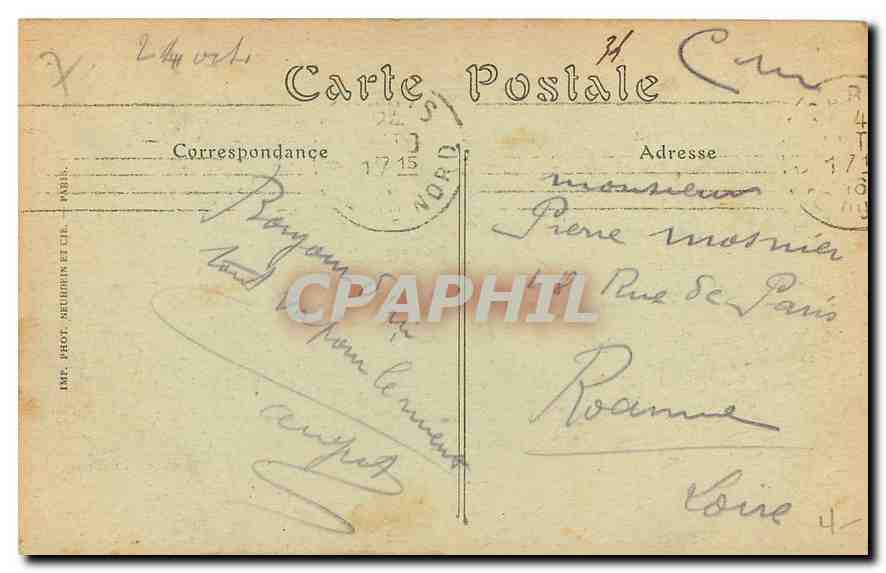 24 oct.
31
Carte Postale
S
NORD
24
17 15
Correspondance
Adresse
Bonjour d'ici
tout va pour le mieux
monsieur
Pierre Mosnier
48 Rue de Paris
Roanne
Loire
4-
CPAPHIL
IMP. PHOT. NEURDEIN ET CIE. — PARIS.